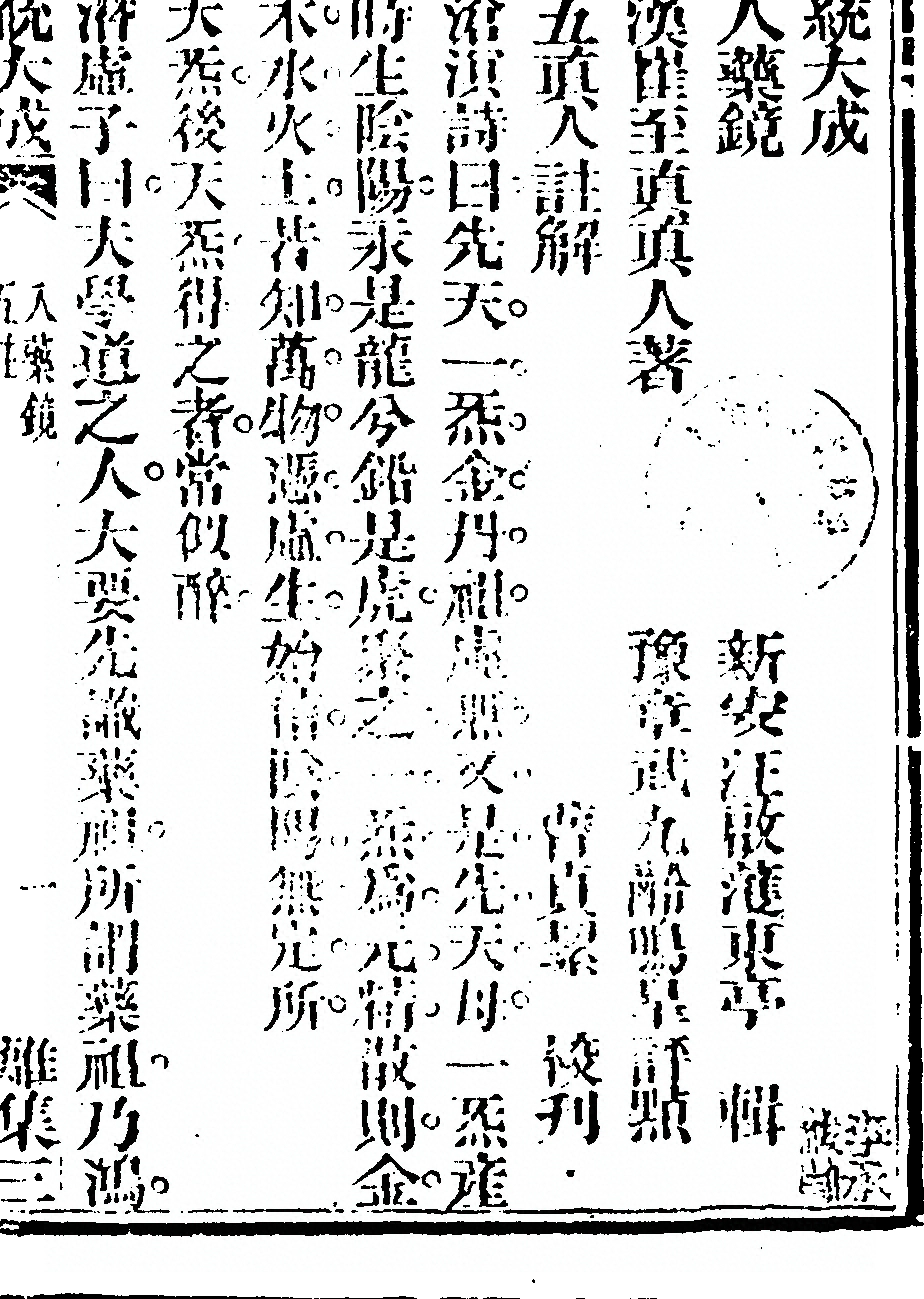 統大成
人藥鏡
新安汪啟濩東亭 輯
漢崔至真真人著
豫章武九齡鳴臯評點
五真人註解
曹真絜 校刊
滄溟詩曰先天一炁金丹祖虛無又是先天母一炁產
時生陰陽汞是龍兮鉛是虎聚之一炁為元精散則金
木水火土皆知萬物憑虛生始信陰陽無定所
天炁後天炁得之者常似醉
潛虛子曰夫學道之人大要先識藥祖所謂藥祖乃鴻
統大成 入藥鏡 一 雖集三